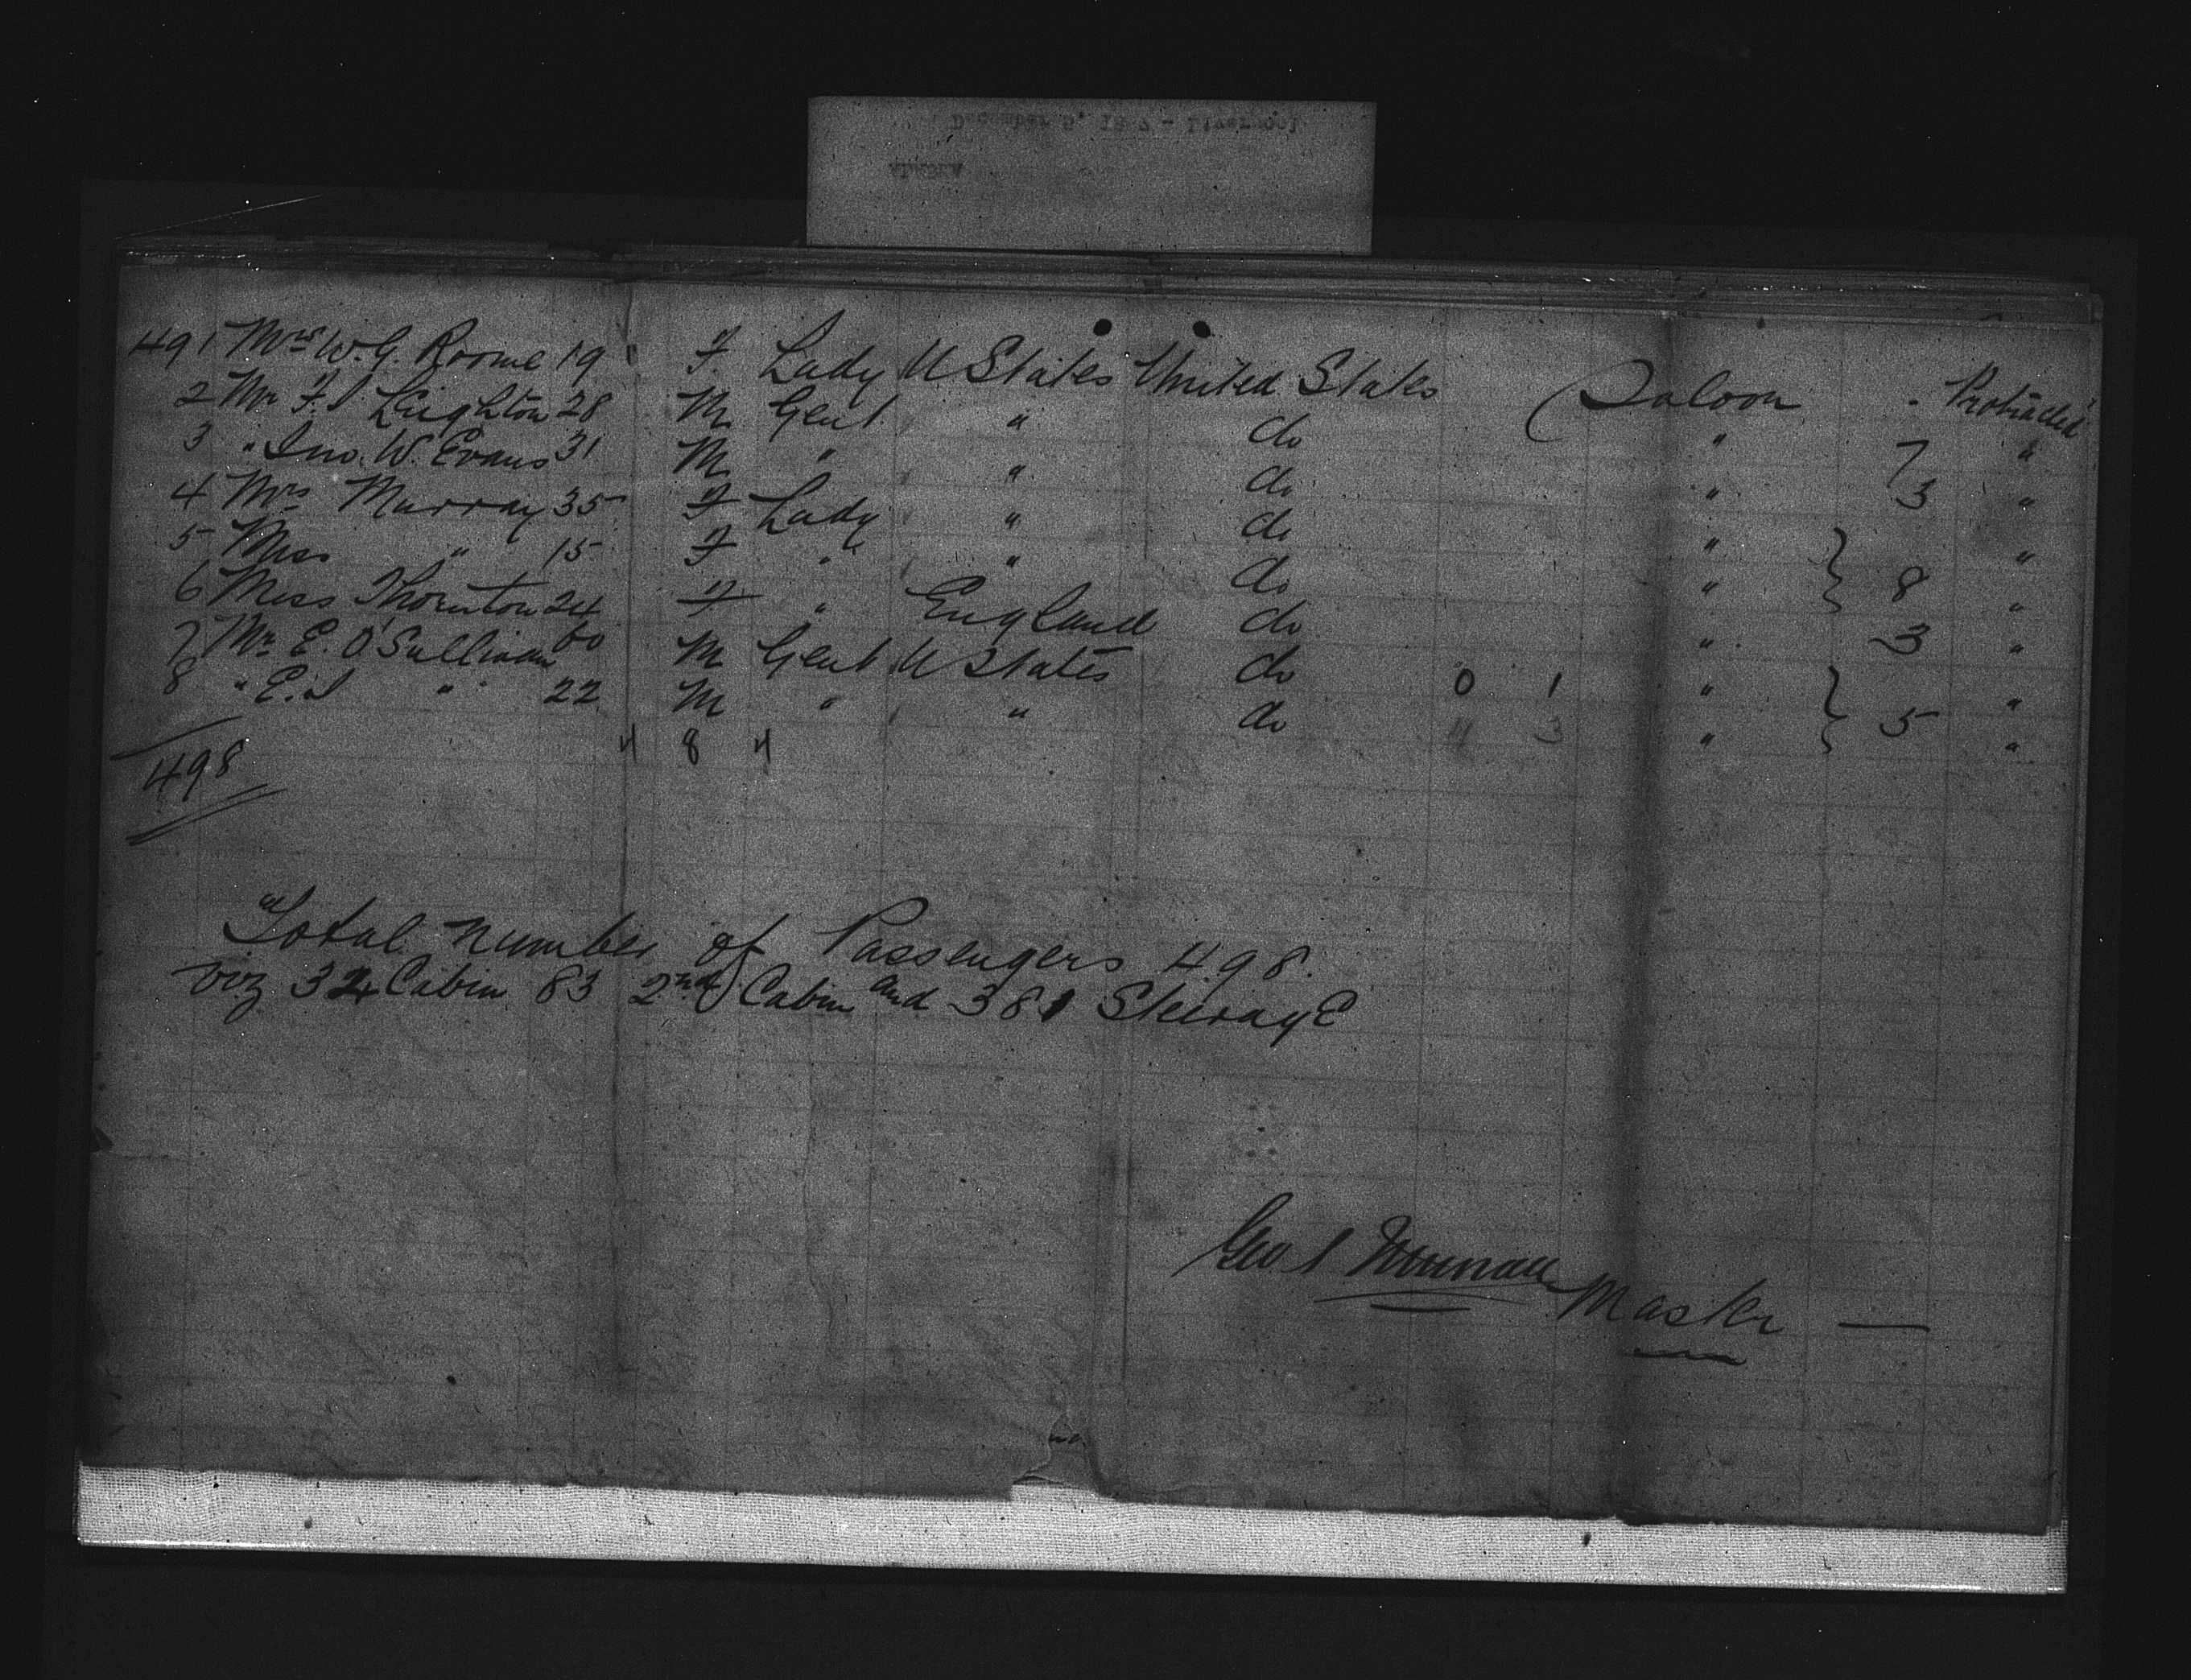 ALASKA
491 Mrs W. G. Roome 19 F Lady U States United States Saloon Protracted
2 Mr F. J Leighton 28 M Gent " do " 7 "
3 " Jno. W. Evans 31 M " " do " 3 "
4 Mrs Murray 35 F Lady " do " "
5 Miss " 15 F " " do " 8 "
6 Miss Thornton 24 F " England do " 3 "
7 Mr E. O'Sullivan 60 M Gent U States do 0 1 " "
8 " E. J " 22 M " " do 4 3 " 5 "
4 8 4
498
Total Number of Passengers 498.
viz 34 Cabin 83 2nd Cabin and 381 Steerage
Geo S Master